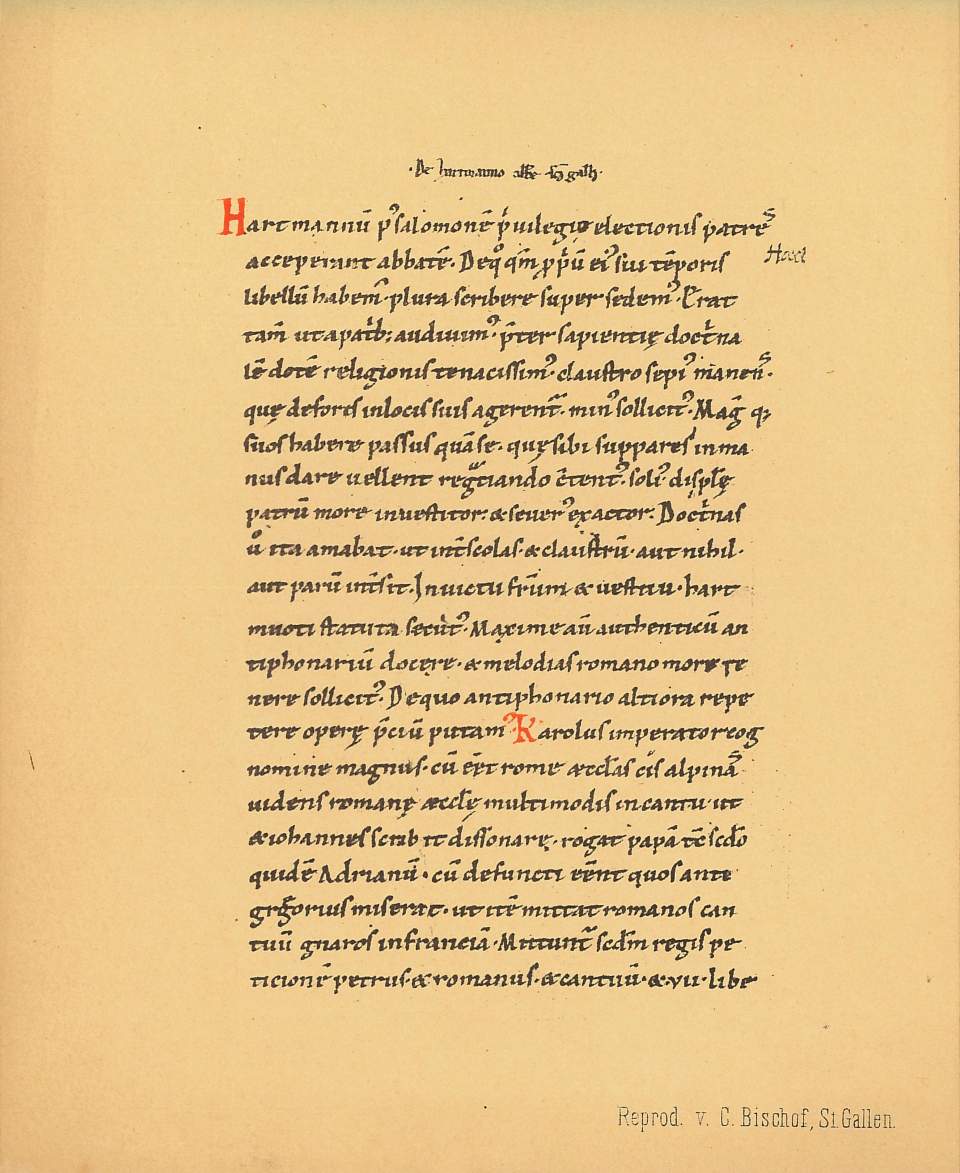 ·De hartmanno abbe sc̄i galli·
Hartmannū p᷒ salomonē p̍uilegio electionis patres
acceperant abbatē. De q᷒ qm̄ ꝓpriū ei᷒ sui tēporis
Hart
libellū habem᷒·plura scribere supersedem᷒·Erat
tam̄ ut a patrib; audiuim᷒·p̄ter sapientię doct̍na
lē dotē religionis tenacissim᷒·claustro sepi᷒ manens·
quę deforis in locis suis agerent̄·min᷒ sollicit᷒·Mag̅ q;
suos habere passus quā se·quę sibi suppares in ma
nus dare uellent negotiando
patrū more inuestitor:& seuer᷒ exactor. Doct̍nas
ū ita amabat·ut int̄ scolas·& claustrū·aut nihil·
aut parū int̄sit. In uictu frūm & uestitu·hart
muoti statuta secut᷒·Maxime aū authenticū an
tiphonariū docęre·& melodias romano more te
nere sollicit᷒·De quo antiphonario altiora repe
tere operę p̄ciū putam᷒ Karolus imperator cog
nomine magnus·cū ēēt rome æccl̄as cis alpinas
uidens romanę æccl̄ę multimodis in cantu·ut
& iohannes scribit dissonare·rogat papā tc̄ scd̄o
quidē Adrianū·cū defuncti eēnt quos ante
gregorius miserat·ut itē mittat romanos can
tuū gnaros in franciā·Mittunt̄ scdm̄ regis pe
ticionē petrus·& romanus·& cantuū·&·vii·libe
Reprod. v. C. Bischof, St. Gallen.